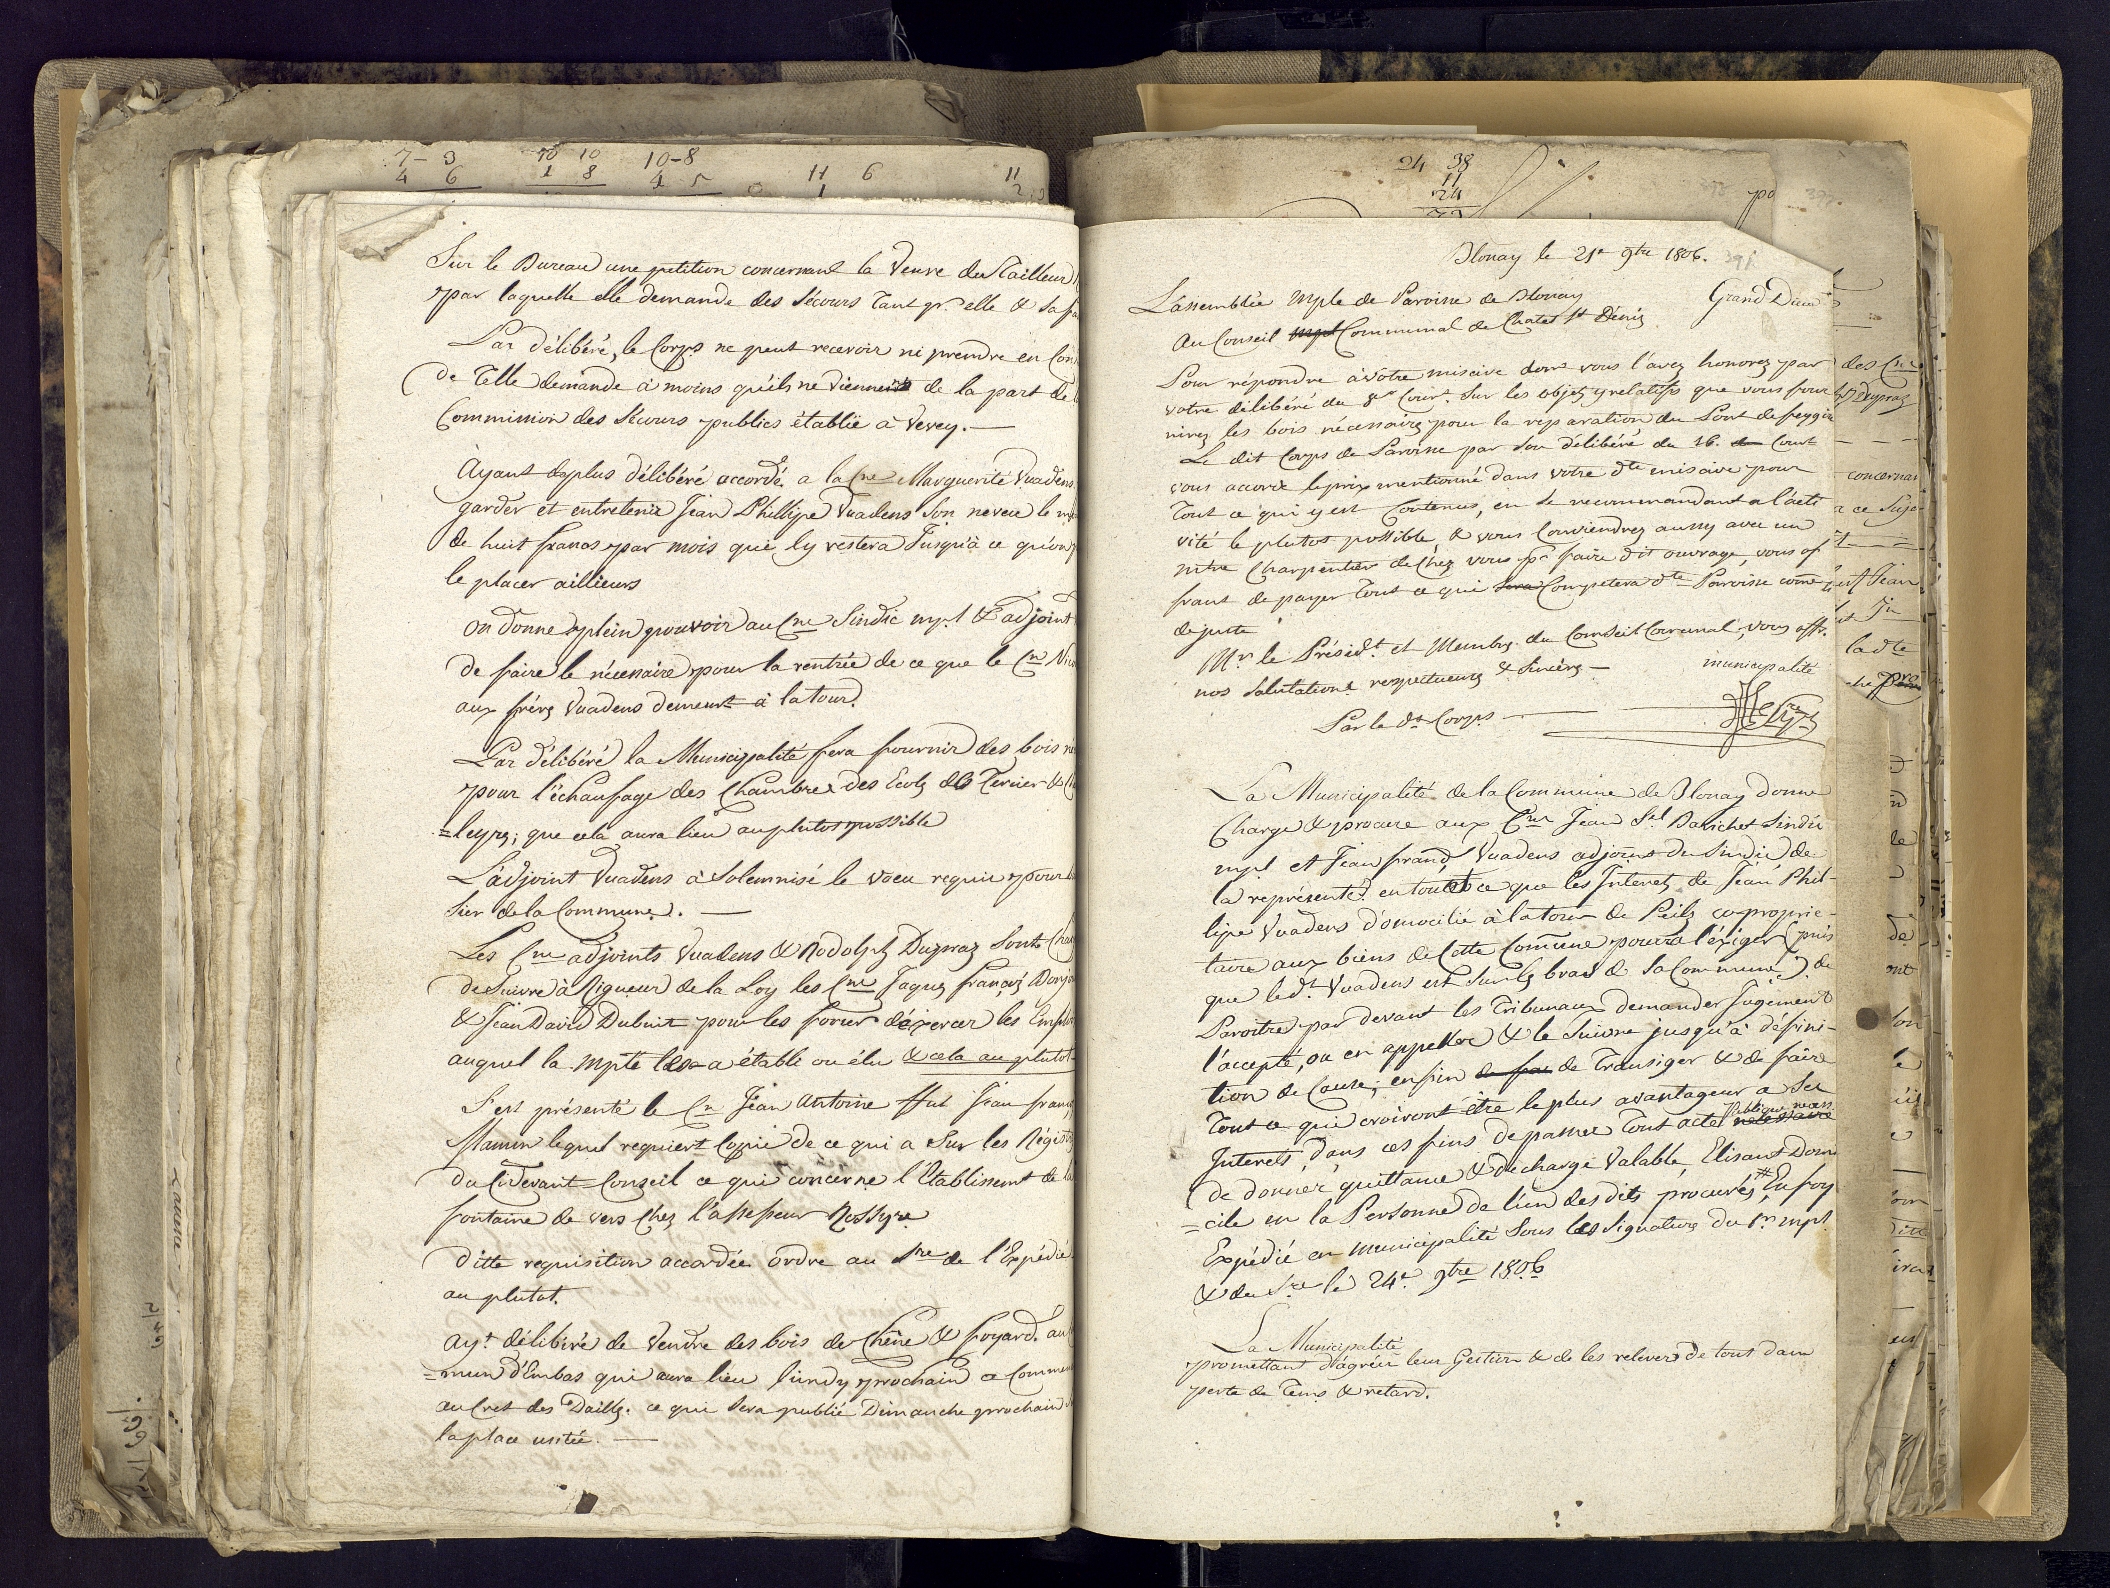 7-3 10 10 10-8 11 6 11
4 6 1 8 4 5 1 2
Sur le Bureau une petition concernant la Veuve du Tailleur
par laquelle elle demande des sécours tant pr. elle & sa
Par délibéré, le Corps ne peut recevoir ni prendre en
de telle demande à moins qu'ils ne viennent de la part de
Commission des sécours publics établie à Vevey. —
Ayant deplus délibéré accordé a la Cne Marguerite Vuadens
garder et entretenir Jean Phillipe Vuadens son neveu le
de huit francs par mois que ly restera Jusqu'à ce qu'on
le placer aillieurs
on donne plein pouvoir au Cne Sindic mpl & adjoint
de faire le nécessaire pour la rentrée de ce que le Cn
aux fréres Vuadens demeurt à latour.
Par délibéré la Municipalité fera fournir des bois
pour l'échaufage des Chambres des Ecols de Tercier &
=leyre; que cela aura lieu auplutos possible
L'adjoint Vuadens à Solemnisé le voeu requis pour
sier de la Commune. —
Les Cne adjoints Vuadens & Rodolph Dupraz sont
de suivre à Rigueur de la Loy les Cne Jaques françois
& Jean David Dubuit pour les forcer déxercer les
auquel la mpte les a établi ou élu & cela au plutot
S'est présenté le Cn Jean Antoine ffut Jean
Mamin lequel requiert Copie de ce qui a sur les
du Cidevant Conseil ce qui concerne l'Etablissemt de
fontaine de vers Chez l'assesseur
Ditte requisition accordée ordre au Sre de l'Expédié
au plutot.
ayt délibéré de Vendre des bois de Chêne & foyard. au
=mun d'Embas qui aura lieu lundy prochain a
au Cret des Dailly. ce qui sera publié Dimanche prochain
la place usitée. —
24 38
11
24
Blonay le 21e 9bre 1806. 391
L'assemblée mple de Paroisse de Blonay Grand District
Au Conseil mpl Communal de Chatel St Dénis
Pour répondre à vôtre missive dont vous l'avez honorez par
votre délibéré du 8e Court. sur les objets y relatifs que vous four
nirez les bois nécessaires pour la réparation du Pont de feygire
Le dit Corps de Paroisse par son délibéré du 16. du Court
vous accorde le prix mentionné dans votre dte missive pour
Tout ce qui y est Contenus, en se recommandant a l'acti
vité le plutot possible & vous Conviendrez aussy avec un
mtre Charpentier de Chez vous pr faire dit ouvrage, vous of
frant de payer tout ce qui sera Competera dte Paroisse come
de juste
Mr. le Présidt. et Membres du Conseil Comunal, vous offr.
nos Salutations respectueuses & sincères — municipalité
Par le dt Corps —
La Municipalité de la Commune de Blonay donne
Charge & procure aux Cne Jean Sel Bonjour Sindic
mpl et Jean frand Vuadens adjoint du Sindic de
la représenter en tout ce que les Interets de Jean Phil-
lipe Vuadens Domicilié à la tour de Peilz co-proprie-
taire aux biens de Cette Commune pourra l'éxiger (puis
que le dt. Vuadens est sur les bras de sa Commune). de
Paroitre par devant les Tribunaux demander Jugement
l'accepté, ou en appeller & le suivre jusqu'à défini-
tion de Cause, enfin de fai de Transiger & de faire
Tout ce qui croiront être le plus avantageux a ses
Interets, dans ces fins de passer tout acte publique necess. nécessaire
de donner quittance & décharge Valable, Elisant Domi
=cile en la Personne de l'un des dits procurés, # En foy
Expédié en municipalité sous les signatures du Pr mpl
& du Sre le 24e 9bre 1806
La Municipalité
promettant d'agréer leur Gestion & de les relever de tout dam
perte de Tems & retard.
des Cne
Dupraz
concernan
Jean
la dte